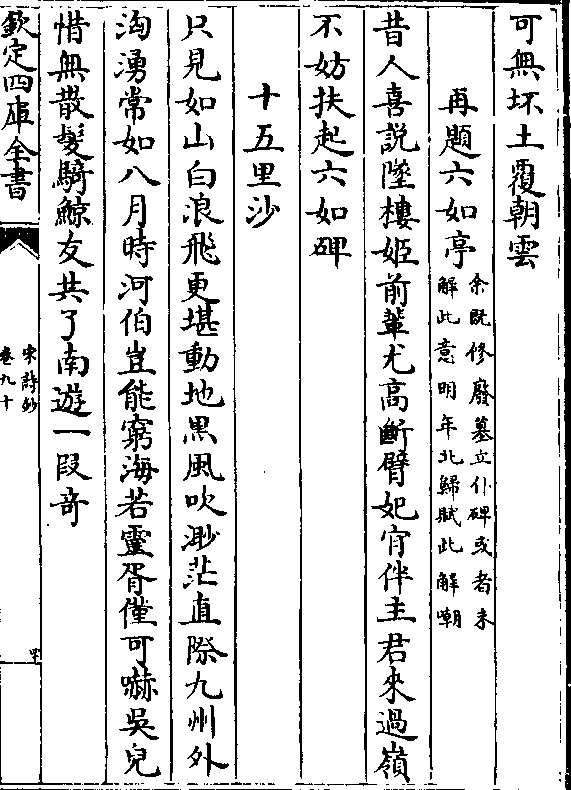 可無坏土覆朝雲
再題六如亭
余既修廢墓立仆碑或者未
解此意明年北歸賦此解嘲
昔人喜説墜樓姬前輩尤高斷臂妃肯伴主君來過嶺
不妨扶起六如碑
十五里沙
只見如山白浪飛更堪動地黒風吹渺茫直際九州外
洶湧常如八月時河伯豈能窮海若靈胥僅可嚇吳兒
惜無散髮騎鯨友共了南遊一段竒
欽定四庫全書
宋詩鈔
卷九十